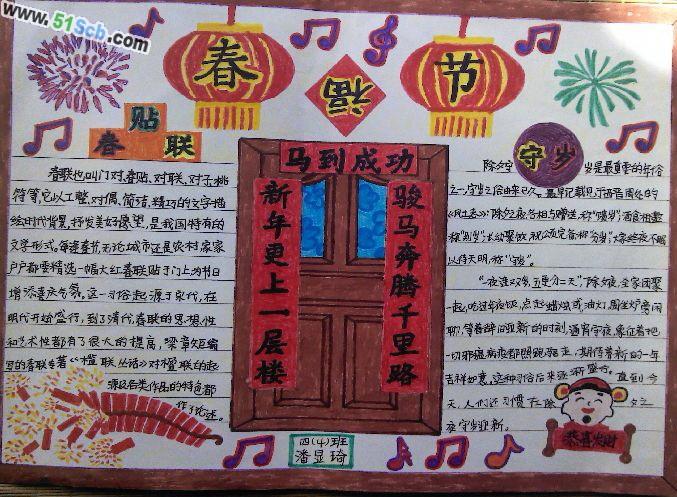 www.51Scb.com
春
节
福
贴
春联
春联也叫门对、春贴、对联、对子、桃
符等,它以工整、对偶、简洁、精巧的文字描
绘时代背景,抒发美好愿望,是我国特有的
文学形式。每逢春节,无论城市还是农村,家家
户户都要精选一幅大红春联贴于门上,为节日
增添喜庆气氛。这一习俗起源于宋代,在
明代开始盛行,到了清代,春联的思想性
和艺术性都有了很大的提高,梁章矩编
写的春联专著《楹联丛话》对楹联的起
源及各类作品的特色都
作了论述。
马到成功
新年更上一层楼
骏马奔腾千里路
四(4)班
潘显琦
守岁
除夕守岁是最重要的年俗
之一,守岁之俗由来已久。最早记载见于西晋周处的
以待天明,称“守岁”。
“一夜连双岁,五更分二天”,除夕夜,全家团聚
一起,吃过年夜饭,点起蜡烛或油灯,围坐炉旁闲
聊,等着辞旧迎新的时刻,通宵守夜,象征着把
一切邪瘟病疫都照跑驱走,期待着新的一年
吉祥如意。这种习俗后来逐渐盛行,直到今
天,人们还习惯在除夕之
夜守岁迎新。
恭喜发财